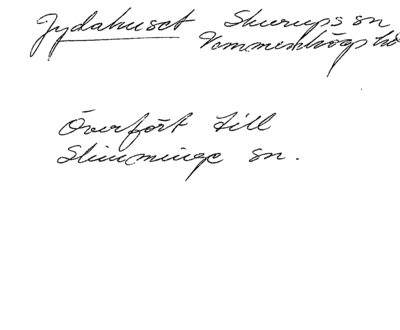 Jydahuset Skurups sn
Vemmenhögs hd
Överfört till
Slimminge sn.